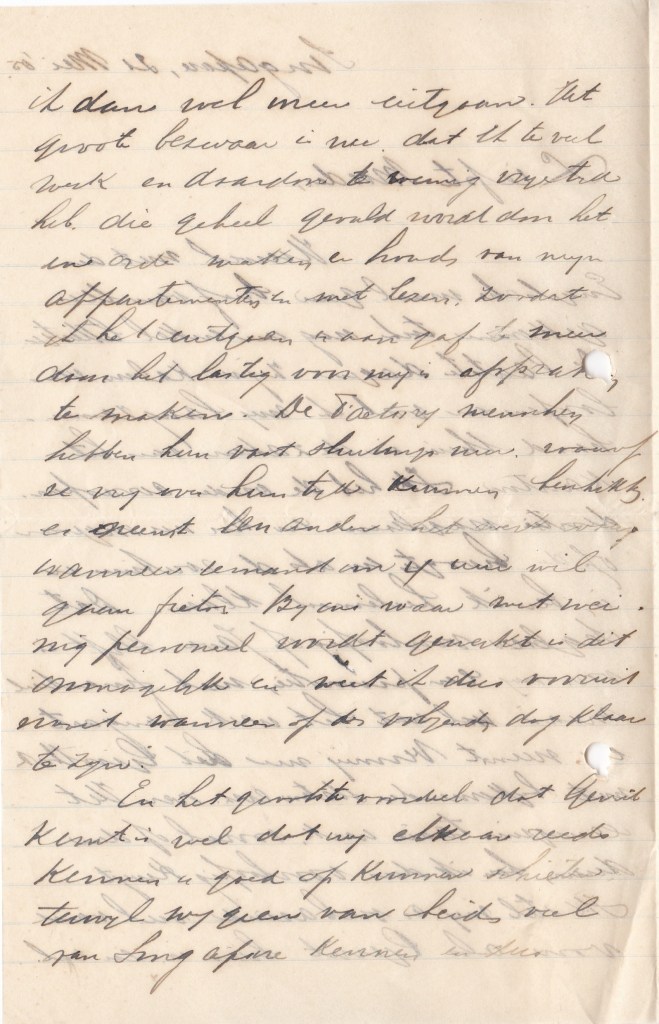 ik dan wel meer uitgaan. Het
groote bezwaar is nu dat ik te veel
werk en daardoor te weinig vrije tijd
heb. die geheel gevuld wordt door het
in orde maken en houden van mijn
appartementen en met lezen. zoodat
ik het uitgaan er aan gaf te meer
daar het lastig voor mij is afspraken
te maken. De Factory menschen
hebben hun vast sluitings uur. waarop
ze vrij over hun tijd kunnen beschikken
en neemt een ander het werk
wanneer iemand om 4 uur wil
gaan fietsen. By ons waar met wei-
nig personeel wordt gewerkt is dit
onmogelijk en weet ik dus vooruit
nooit wanneer of de volgende dag klaar
te zijn.
En het grootste voordeel dat Gerrit
komt is wel dat wij elkaar reeds
kennen en goed op kunnen schieten.
terwijl wij geen van beide veel
van Singapore kennen en dus